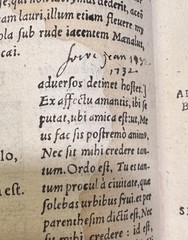 se, qui non
am lauri, illum etiam fleuere my
ola sub rude iacentem Mænalus,
jean
1732
aduersos detinet hostes.]
Ex affectu amantis, ibi se
putat, ubi amica est: ut, Me
us fac sis postremò animo,
Nec sit mihi credere tan-
tum. Ordo est, Tu es tan-
tum procul à ciuitate, qua
solebas urbibus frui. et per
parenthesim dicta est, Nec
sit mihi credere: id est,
lo,
est.